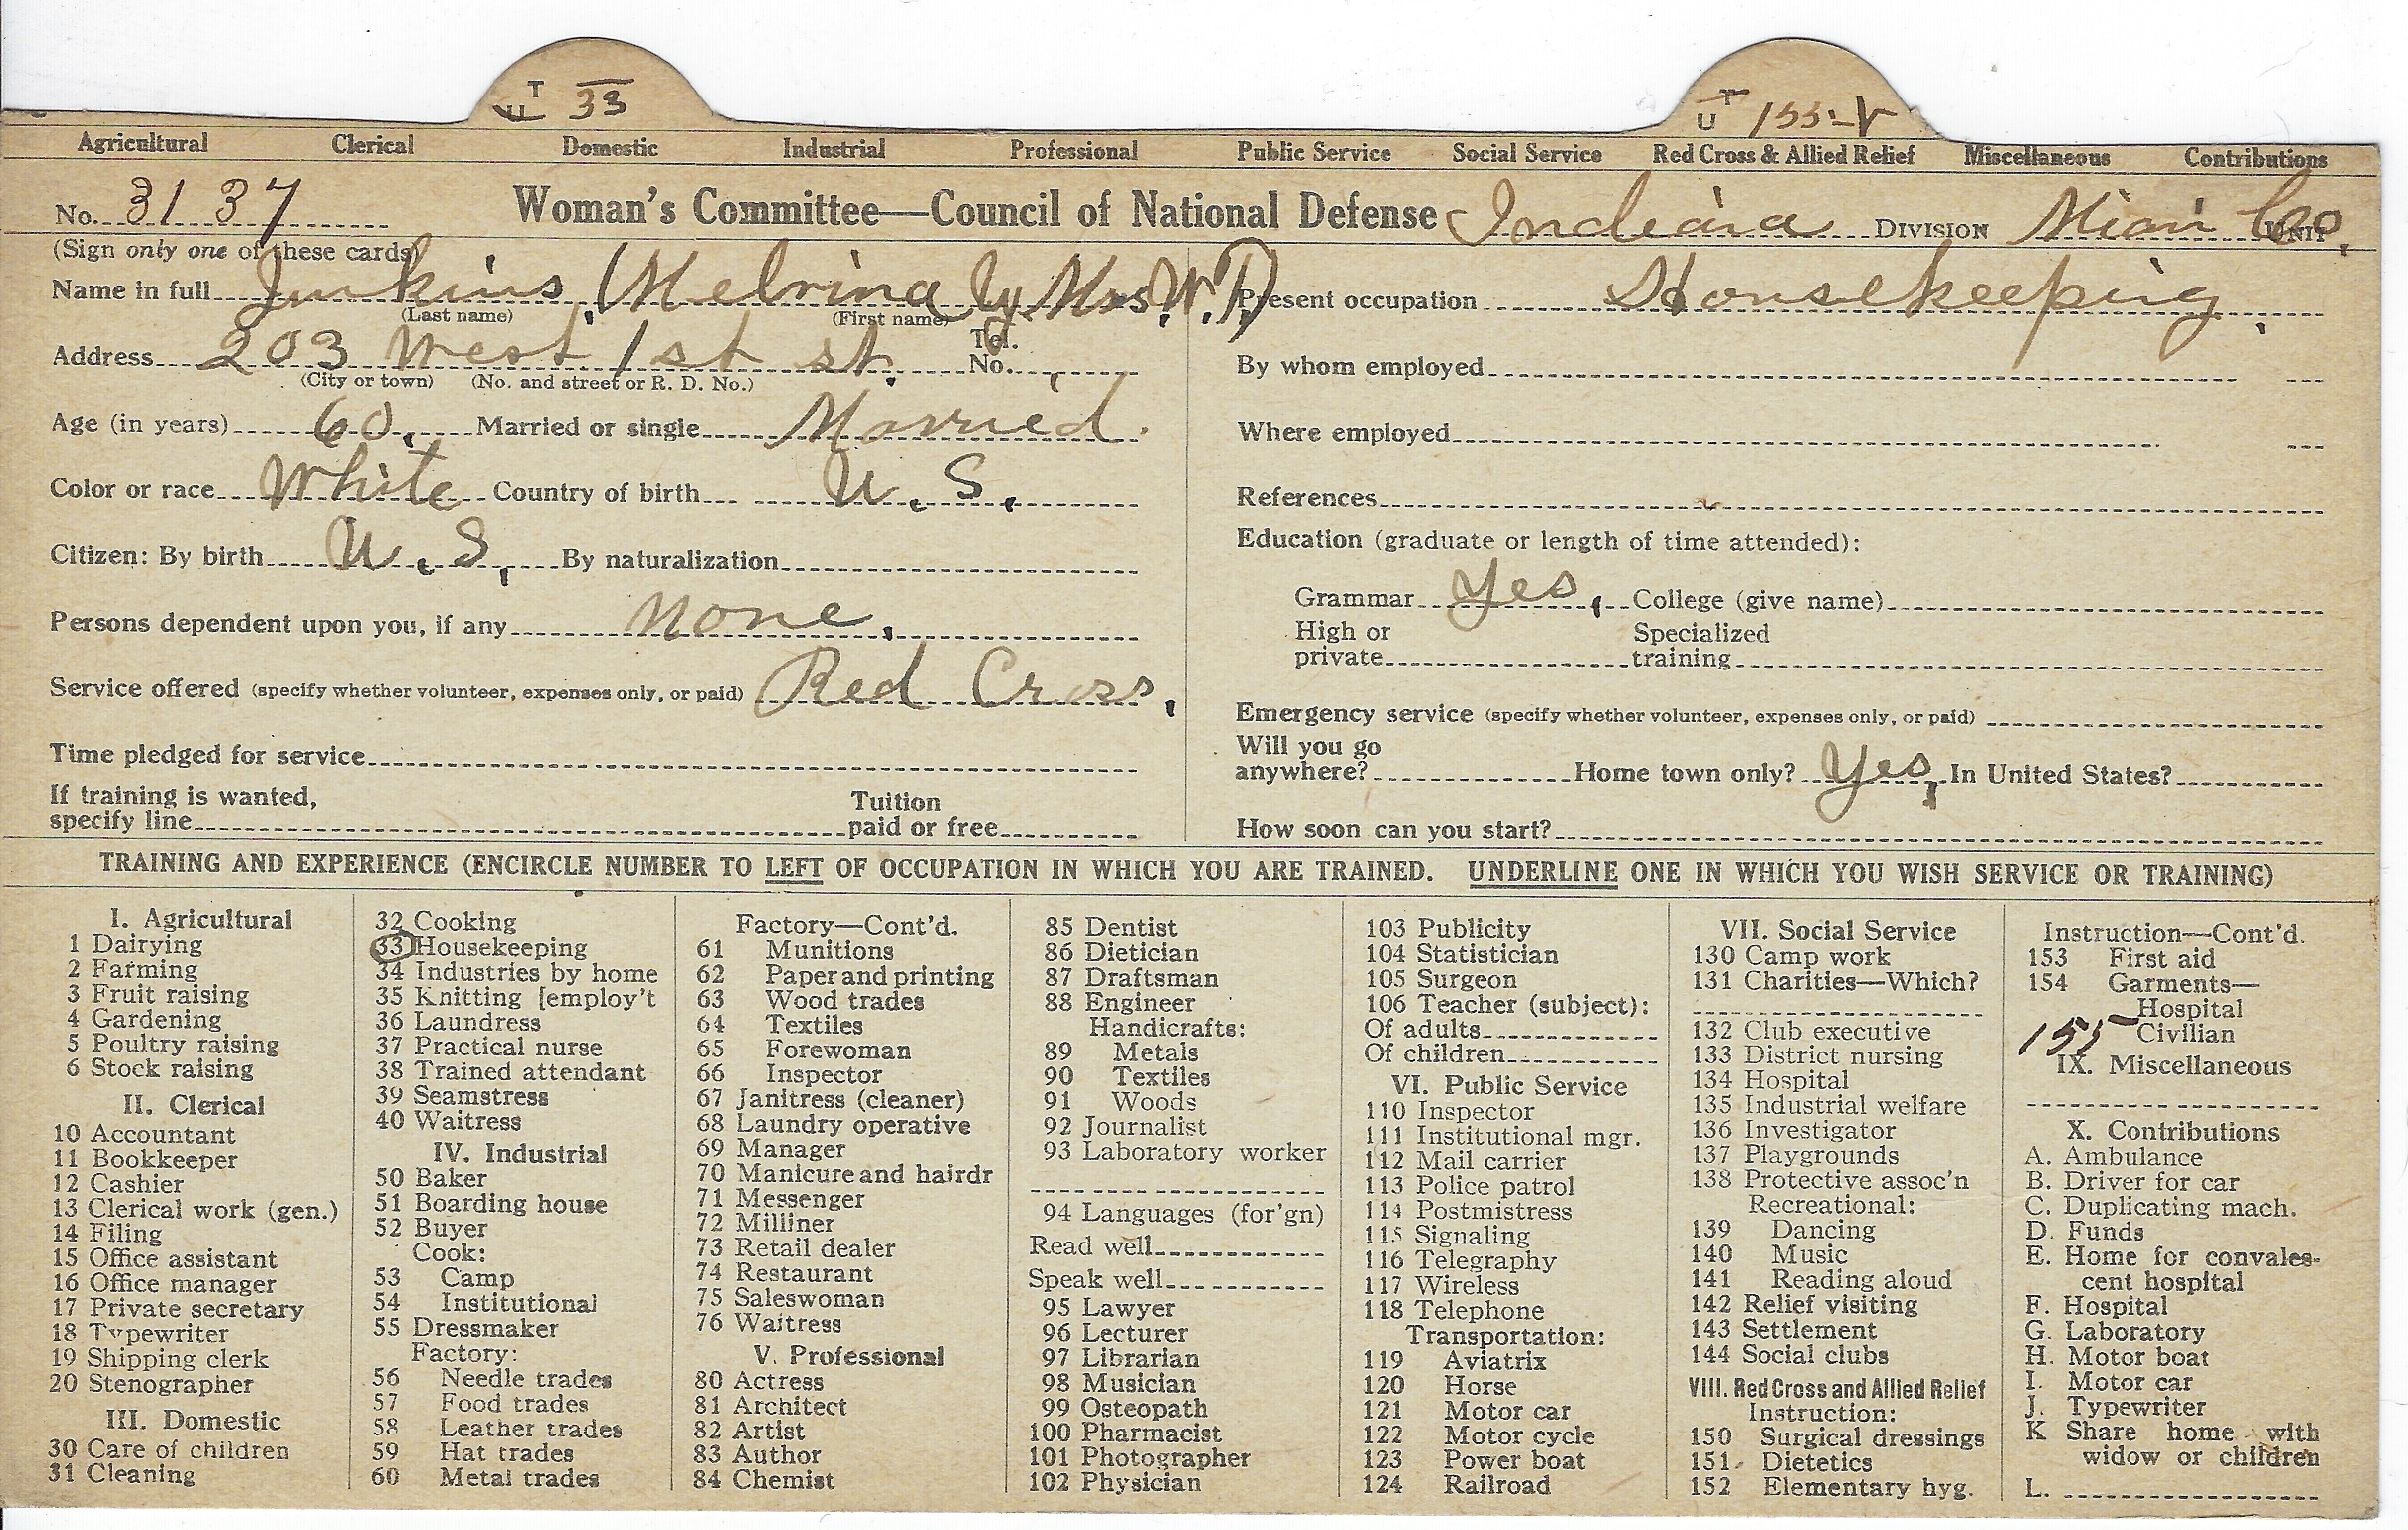 T U 33
T U 155-V
Agricultural Clerical Domestic Industrial Professional Public Service Social Service Red Cross & Allied Relief Miscellaneous Contributions
No. 3137 Woman's Committee—Council of National Defense Indiana DIVISION Miami Co. UNIT
(Sign only one of these cards)
Name in full Junkins, (Melvina Mrs. W. T)
(Last name) (First name)
Address 203 West 1st st. Tel. No.
(City or town) (No. and street or R. D. No.)
Age (in years) 60. Married or single Married.
Color or race White Country of birth U. S.
Citizen: By birth U. S. By naturalization
Persons dependent upon you, if any none.
Service offered (specify whether volunteer, expenses only, or paid) Red Cross.
Time pledged for service
If training is wanted,
specify line Tuition paid or free
Present occupation Housekeeping.
By whom employed
Where employed
References
Education (graduate or length of time attended):
Grammar Yes, College (give name)
High or private Specialized training
Emergency service (specify whether volunteer, expenses only, or paid)
Will you go anywhere? Home town only? Yes, In United States?
How soon can you start?
TRAINING AND EXPERIENCE (ENCIRCLE NUMBER TO LEFT OF OCCUPATION IN WHICH YOU ARE TRAINED. UNDERLINE ONE IN WHICH YOU WISH SERVICE OR TRAINING)
I. Agricultural
1 Dairying
2 Farming
3 Fruit raising
4 Gardening
5 Poultry raising
6 Stock raising
II. Clerical
10 Accountant
11 Bookkeeper
12 Cashier
13 Clerical work (gen.)
14 Filing
15 Office assistant
16 Office manager
17 Private secretary
18 Typewriter
19 Shipping clerk
20 Stenographer
III. Domestic
30 Care of children
31 Cleaning
32 Cooking
33 Housekeeping
34 Industries by home
35 Knitting [employ't
36 Laundress
37 Practical nurse
38 Trained attendant
39 Seamstress
40 Waitress
IV. Industrial
50 Baker
51 Boarding house
52 Buyer
Cook:
53 Camp
54 Institutional
55 Dressmaker
Factory:
56 Needle trades
57 Food trades
58 Leather trades
59 Hat trades
60 Metal trades
Factory—Cont'd.
61 Munitions
62 Paper and printing
63 Wood trades
64 Textiles
65 Forewoman
66 Inspector
67 Janitress (cleaner)
68 Laundry operative
69 Manager
70 Manicure and hairdr
71 Messenger
72 Milliner
73 Retail dealer
74 Restaurant
75 Saleswoman
76 Waitress
V. Professional
80 Actress
81 Architect
82 Artist
83 Author
84 Chemist
85 Dentist
86 Dietician
87 Draftsman
88 Engineer
Handicrafts:
89 Metals
90 Textiles
91 Woods
92 Journalist
93 Laboratory worker
94 Languages (for'gn)
Read well
Speak well
95 Lawyer
96 Lecturer
97 Librarian
98 Musician
99 Osteopath
100 Pharmacist
101 Photographer
102 Physician
103 Publicity
104 Statistician
105 Surgeon
106 Teacher (subject):
Of adults
Of children
VI. Public Service
110 Inspector
111 Institutional mgr.
112 Mail carrier
113 Police patrol
114 Postmistress
115 Signaling
116 Telegraphy
117 Wireless
118 Telephone
Transportation:
119 Aviatrix
120 Horse
121 Motor car
122 Motor cycle
123 Power boat
124 Railroad
VII. Social Service
130 Camp work
131 Charities—Which?
132 Club executive
133 District nursing
134 Hospital
135 Industrial welfare
136 Investigator
137 Playgrounds
138 Protective assoc'n
Recreational:
139 Dancing
140 Music
141 Reading aloud
142 Relief visiting
143 Settlement
144 Social clubs
VIII. Red Cross and Allied Relief
Instruction:
150 Surgical dressings
151 Dietetics
152 Elementary hyg.
Instruction—Cont'd.
153 First aid
154 Garments—
Hospital
155 Civilian
IX. Miscellaneous
X. Contributions
A. Ambulance
B. Driver for car
C. Duplicating mach.
D. Funds
E. Home for convales-
cent hospital
F. Hospital
G. Laboratory
H. Motor boat
I. Motor car
J. Typewriter
K Share home with
widow or children
L.